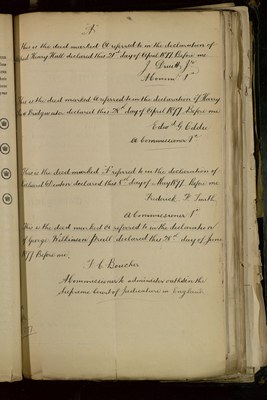 A
This is the deed marked A referred to in the declaration of
Henry Hall declared this day of April 1877 Before me
J.
This is the deed marked A referred to in the declaration of Harry
declared this 28th day of April 1877 Before me
Edwd G Eddie
A Commissioner &c
This is the deed marked F referred to in the declaration of
declared this day of May 1877 Before me
Frederick F Smith
A Commissioner &c
This is the deed marked A referred to in the declaration
of George Wilkinson declared this day of June
1877 Before me
F C Boucher
A Commissioner to administer oaths in the
Supreme Court of Judicature in England